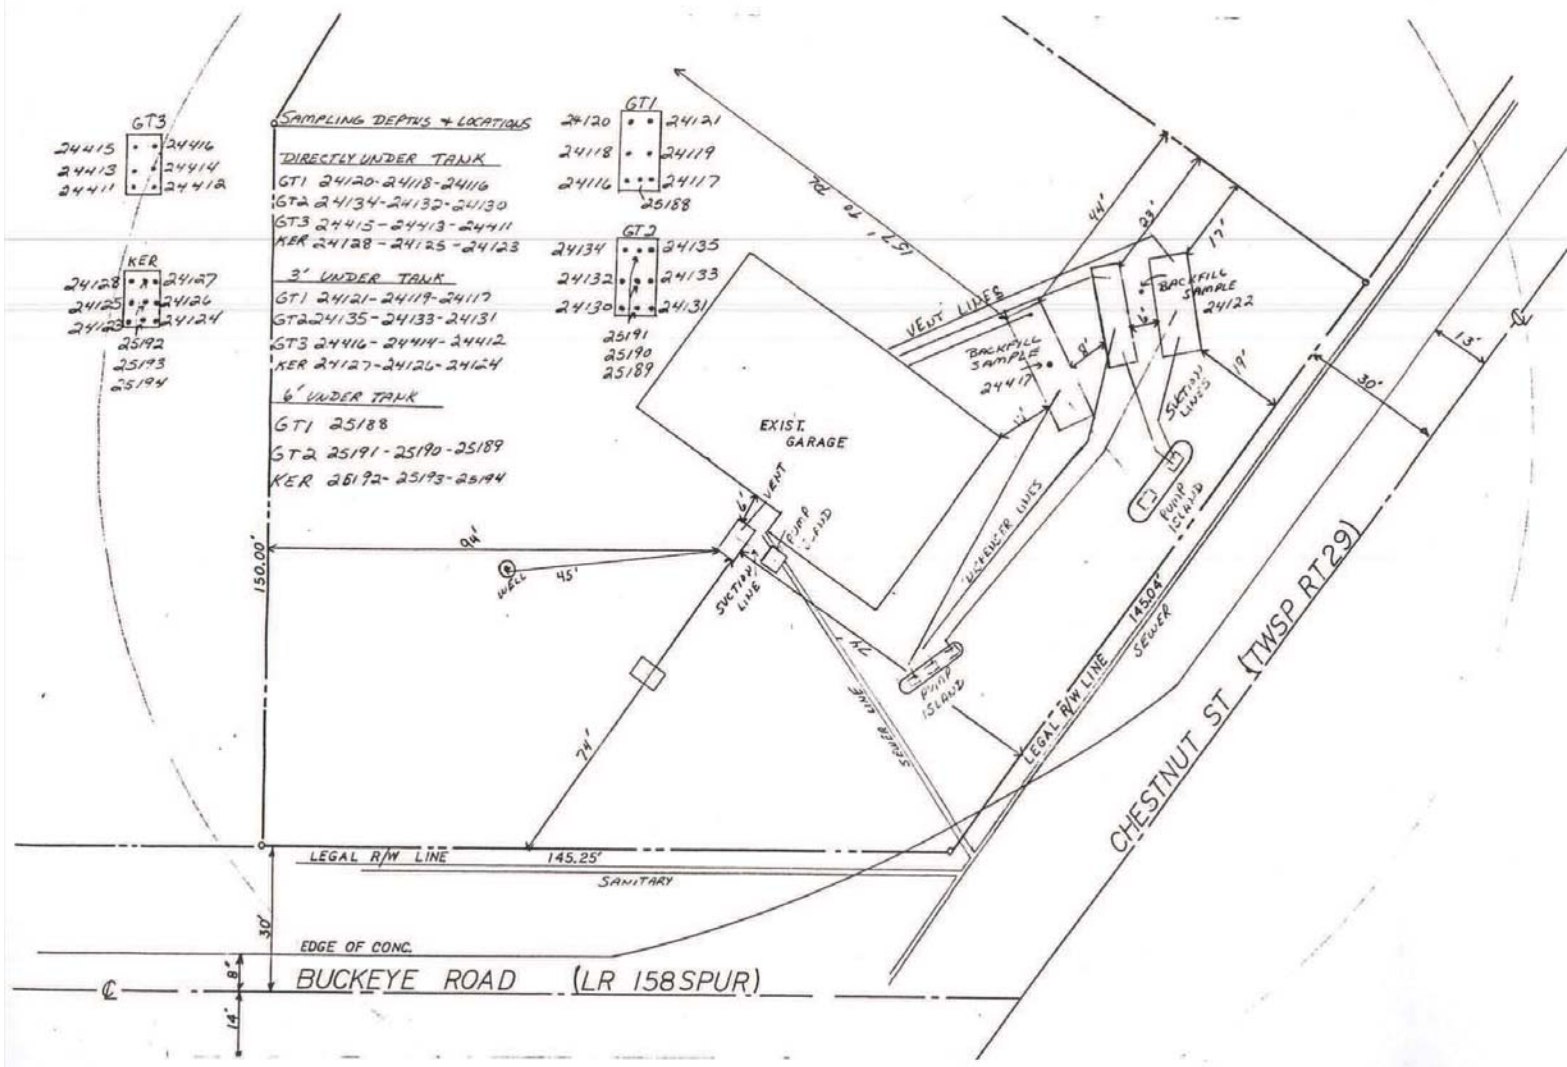 GT3
24415 24416
24413 24414
24411 24412
KER
24128 24127
24125 24126
24123 24124
25192
25193
25194
SAMPLING DEPTHS & LOCATIONS
DIRECTLY UNDER TANK
GT1 24120-24118-24116
GT2 24134-24132-24130
GT3 24415-24413-24411
KER 24128-24125-24123
3' UNDER TANK
GT1 24121-24119-24117
GT2 24135-24133-24131
GT3 24416-24414-24412
KER 24127-24126-24124
6' UNDER TANK
GT1 25188
GT2 25191-25190-25189
KER 25192-25193-25194
GT1
24120 24121
24118 24119
24116 24117
25188
GT2
24134 24135
24132 24133
24130 24131
25191
25190
25189
157' TO PL
44'
23'
17'
VENT LINES
BACKFILL
SAMPLE
24122
6'
8'
BACKFILL
SAMPLE
24417
12'
19'
SUCTION
LINES
13'
30'
EXIST.
GARAGE
PUMP
ISLAND
DISPENSER LINES
VENT
6'
PUMP
ISLAND
SUCTION
LINE
94'
45'
WELL
150.00'
74'
74'
SEWER LINE
PUMP
ISLAND
LEGAL R/W LINE 145.04'
SEWER
CHESTNUT ST (TWSP RT 29)
LEGAL R/W LINE 145.25'
SANITARY
30'
EDGE OF CONC.
8'
BUCKEYE ROAD (LR 158 SPUR)
14'